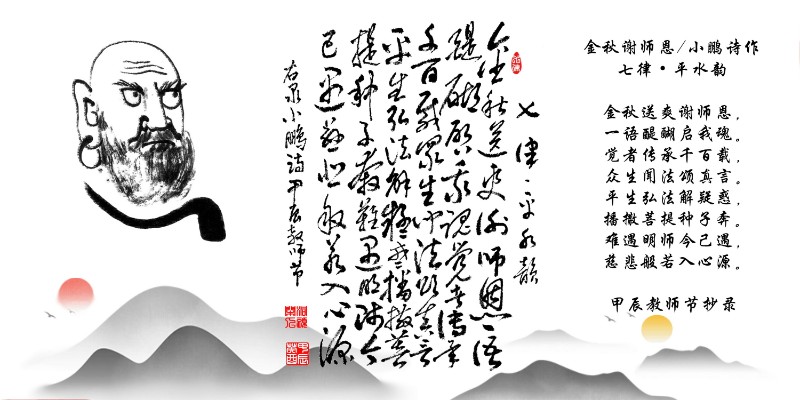 金秋谢师恩/小鹏诗作
七律·平水韵
金秋送爽谢师恩，
一语醍醐启我魂。
觉者传承千百载，
众生闻法颂真言。
平生弘法解疑惑，
播撒菩提种子奔。
难遇明师今已遇，
慈悲般若入心源。
甲辰教师节抄录
七律·平水韵
金秋送爽谢师恩一语
醍醐启我魂觉者传承
千百载众生闻法颂真言
平生弘法解疑惑播撒菩
提种子奔难遇明师今
已遇慈悲般若入心源
右录小鹏诗甲辰教师节